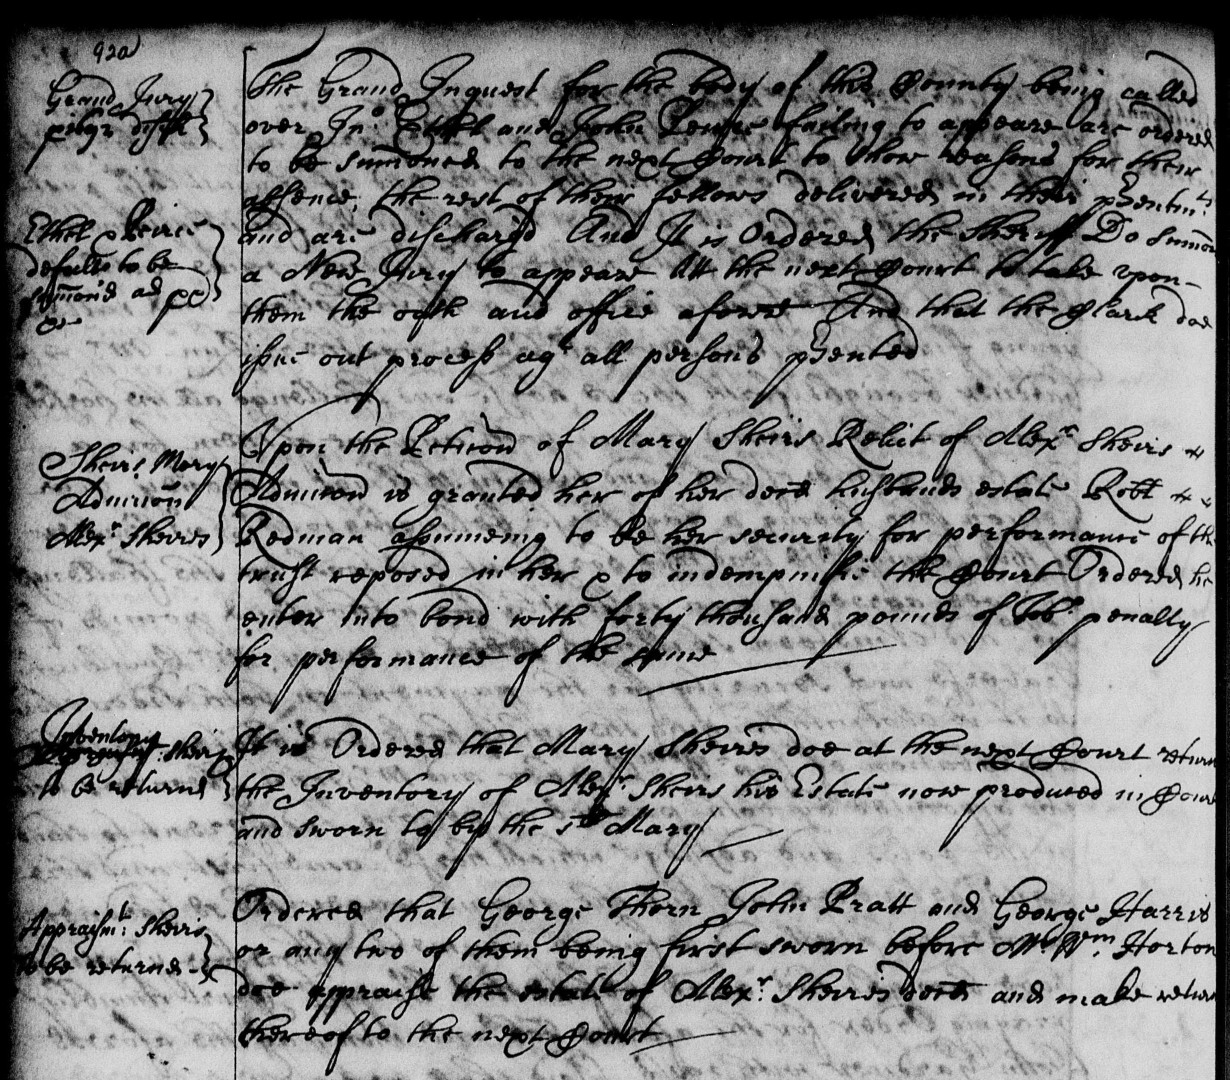 92a
Grand Jury
psentr dischd
The Grand Inquest for the body of this County being called
over Jno. Ethell and John Peirce failing to appeare are ordered
to be sumoned to the next Court to shew reasons for their
absence, the rest of their fellows delivered in their psentmts
and are dischargd And It is Ordered the Sheriff Do sumon
a New Jury to appeare Att the next Court to take upon
them the oath and office aforesd And that the Clark doe
issue out process agt all persons psented
Ethel & Peirce
defalts to be
sumond ad px
Cr
Upon the Peticon of Mary Sheirs Relict of Alexr Sheirs
Admicon is granted her of her decd husbands estate Robt
Redman assumeing to be her security for performance of the
trust reposed in her & to indempnifie the Court Ordered he
enter into bond with forty thousand pounds of Tobo penalty
for performance of the same
Sheirs Mary
Admicon
Alexr Sheires
It is Ordered that Mary Sheires doe at the next Court return
the Inventory of Alexr Sheirs his Estate now produced in Court
and sworn to by the sd Mary
Inventory
Sheirs
to be returnd
Ordered that George Thorn John Pratt and George Harris
or any two of them being first sworn before Mr Wm Horton
doe appraise the estate of Alexr Sheires decd and make return
thereof to the next Court
Appraismt Sheirs
to be returned